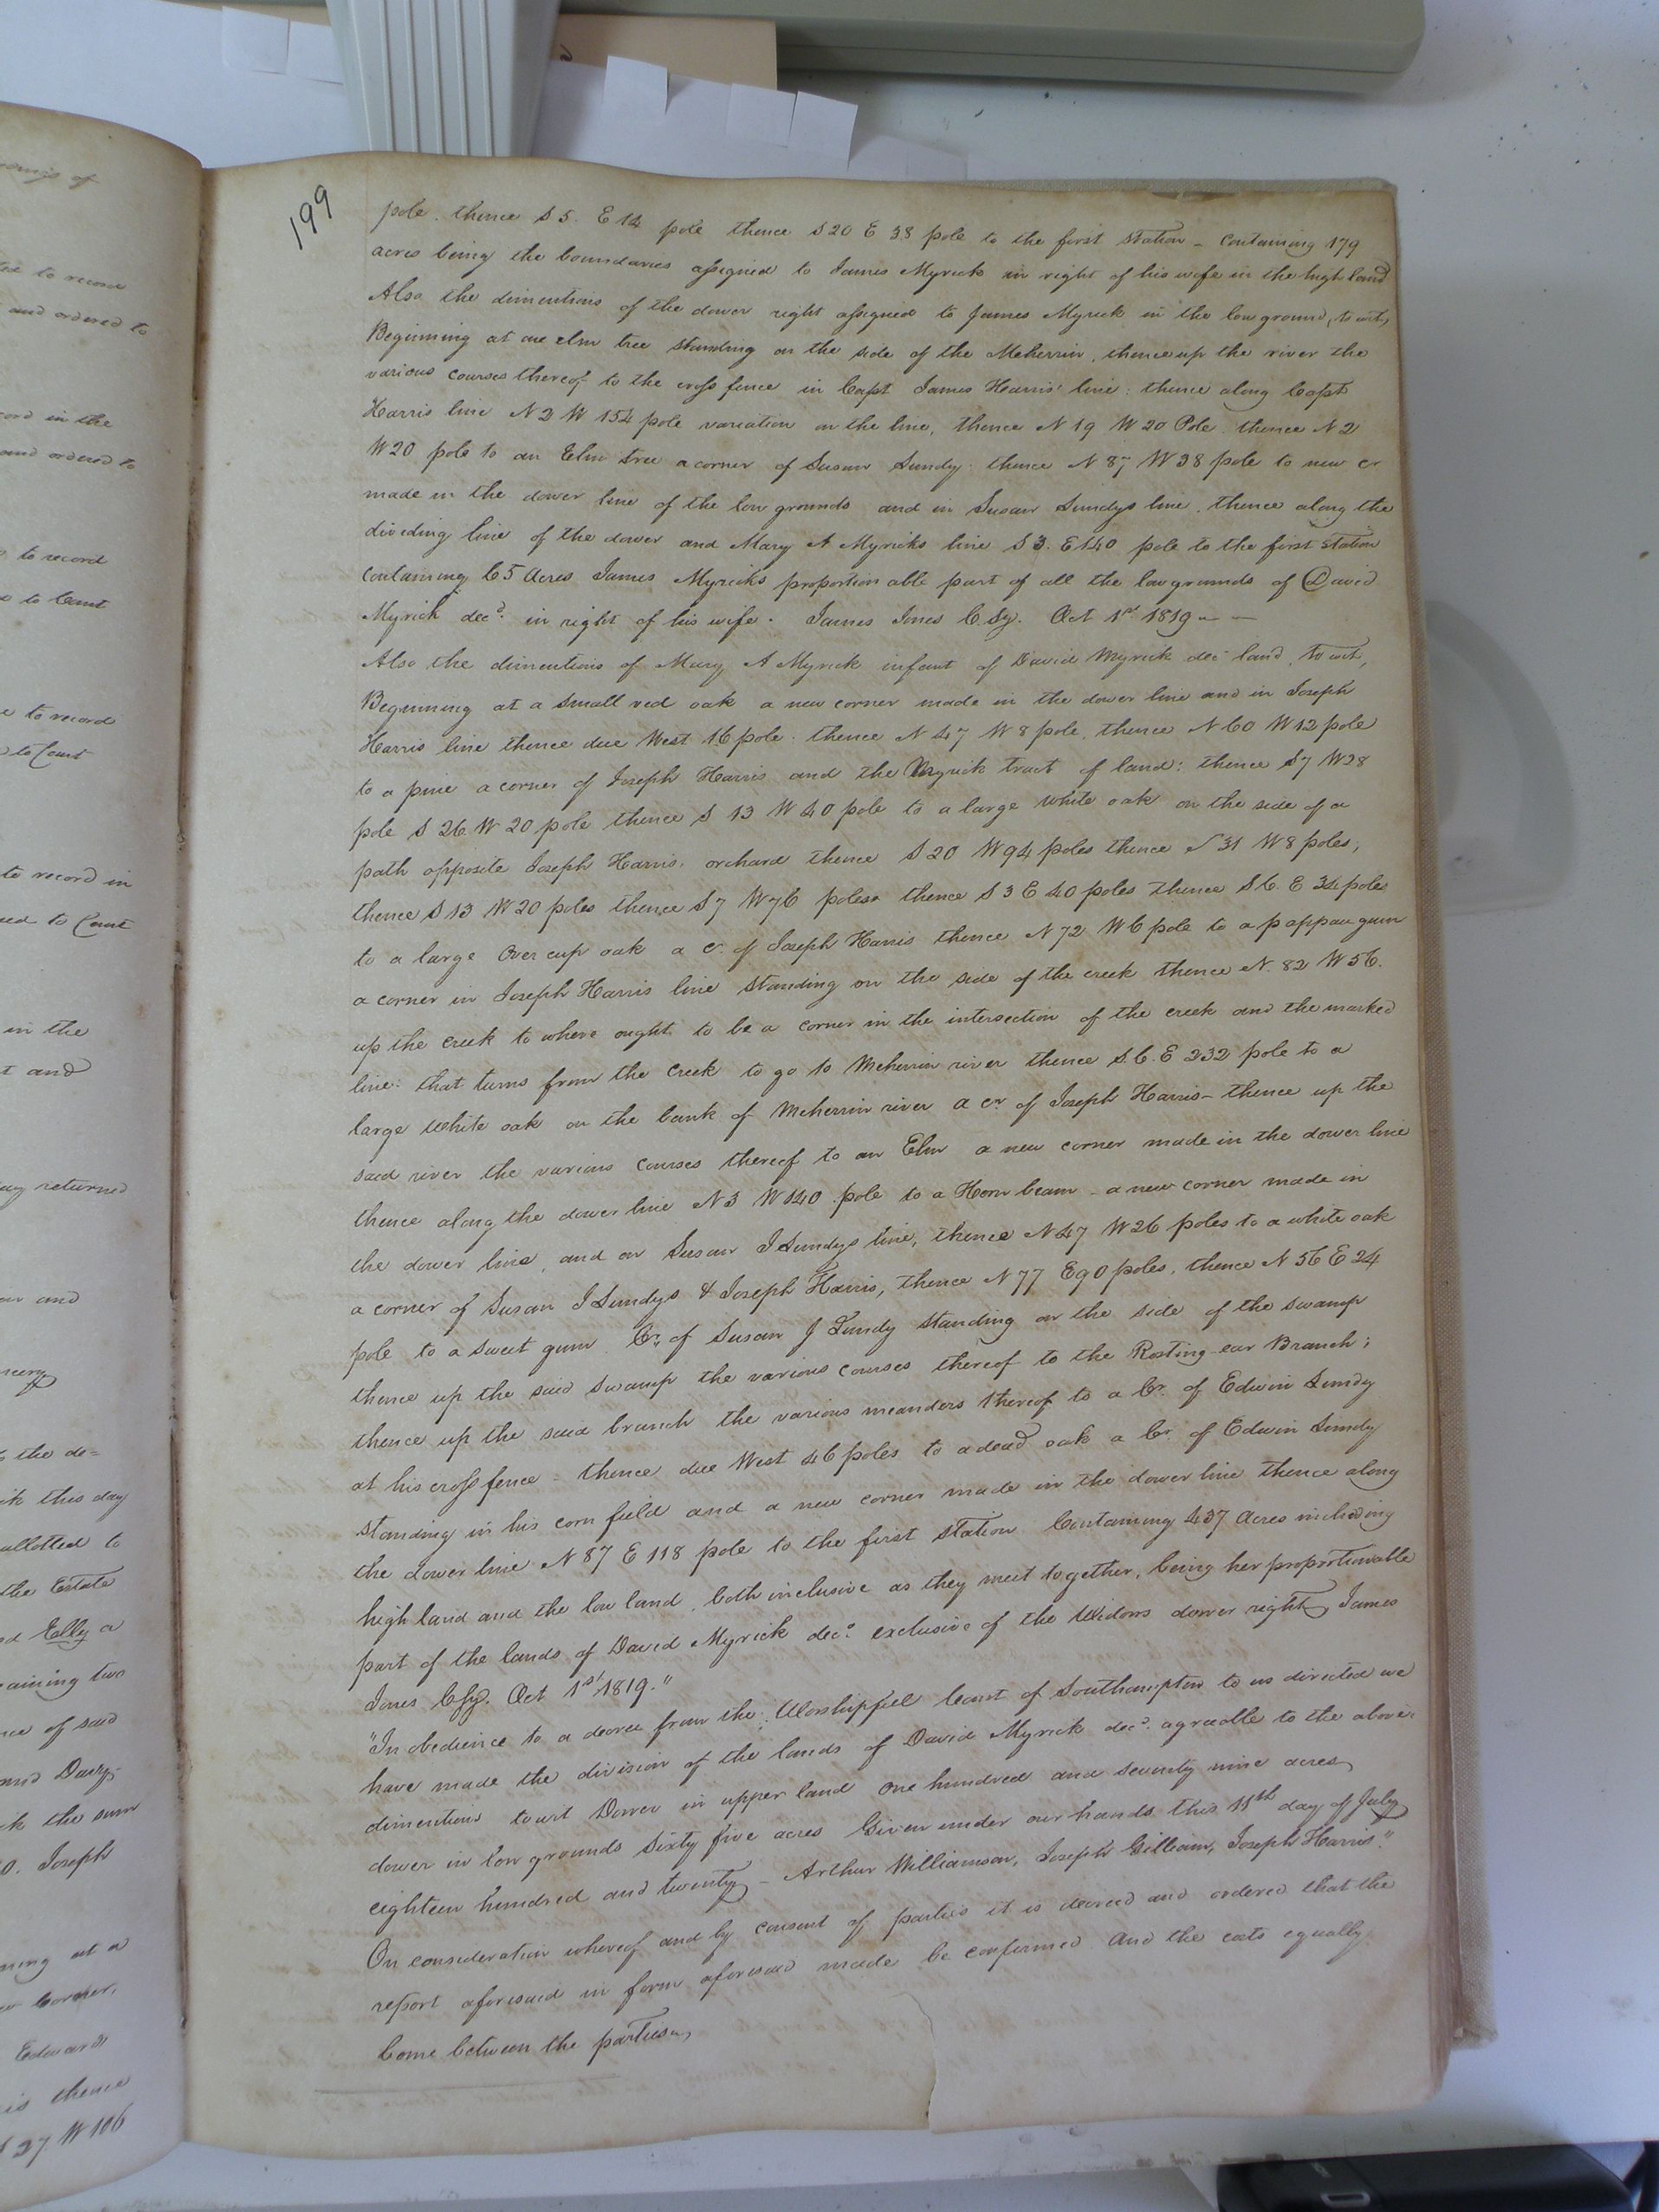 199
pole. thence S 5. E 14 pole thence S 20 E 38 pole to the first station - Containing 179
acres being the boundaries assigned to James Myrick in right of his wife in the high land
Also the dimentions of the dower right assigned to James Myrick in the low ground, to wit,
Beginning at one elm tree standing on the side of the Meherrin, thence up the river the
various courses thereof to the cross fence in Capt James Harris' line: thence along Capt
Harris line N 2 W 154 pole variation on the line, thence N 19 W 20 Pole. thence N 2
W 20 pole to an Elm tree a corner of Susan Lundy: thence N 87 W 38 pole to new cr
made in the dower line of the low grounds and in Susan Lundys line, thence along the
dividing line of the dower and Mary A Myricks line S 3. E 140 pole to the first station
Containing 65 Acres James Myricks proportionable part of all the lowgrounds of David
Myrick decd. in right of his wife. James Jones C. Sy. Oct 1st 1819 - -
Also the dimentions of Mary A Myrick infant of David Myrick decd land, to wit,
Beginning at a small red oak a new corner made in the dower line and in Joseph
Harris line thence due West 16 pole. thence N 47 W 8 pole, thence N 60 W 12 pole
to a pine a corner of Joseph Harris and the Myrick tract of land: thence S 7 W 28
pole S 26 W 20 pole thence S 13 W 40 pole to a large White oak on the side of a
path opposite Joseph Harris, orchard thence S 20 W 94 poles thence S 31 W 8 poles,
thence S 13 W 20 poles thence S 7 W 76 poles thence S 3 E 40 poles thence S 6. E 34 poles
to a large Over cup oak a cr. of Joseph Harris thence N 72 W 6 pole to a pappau gum
a corner in Joseph Harris line standing on the side of the creek thence N. 82 W 56.
up the creek to where ought to be a corner in the intersection of the creek and the marked
line: that turns from the Creek to go to Meherrin river thence S. 6. E 232 pole to a
large White oak on the bank of Meherrin river a cr of Joseph Harris - thence up the
said river the various courses thereof to an Elm a new corner made in the dower line
thence along the dower line N 3 W 140 pole to a Horn beam - a new corner made in
the dower line, and on Susan J Lundys line, thence N 47 W 26 poles to a white oak
a corner of Susan J Lundys & Joseph Harris, thence N 77 E 90 poles, thence N 56 E 24
pole to a sweet gum Cr. of Susan J Lundy standing on the side of the swamp
thence up the said swamp the various courses thereof to the Rosting ear Branch;
thence up the said branch the various meanders thereof to a Cr. of Edwin Lundy
at his cross fence - thence due West 46 poles to a dead oak a Cr. of Edwin Lundy
standing in his corn field and a new corner made in the dower line thence along
the dower line N 87 E 118 pole to the first station Containing 437 Acres including
high land and the low land, both inclusive as they meet together, being her proportionable
part of the lands of David Myrick decd. exclusive of the Widows dower right, James
Jones C Sy. Oct 1st 1819."
"In obedience to a decree from the Worshipfull Court of Southampton to us directed we
have made the division of the lands of David Myrick decd. agreable to the above
dimentions to wit Dower in upper land one hundred and seventy nine acres,
dower in low grounds Sixty five acres Given under our hands this 11th day of July
eighteen hundred and twenty - Arthur Williamson, Joseph Gilliam, Joseph Harris."
On consideration whereof and by consent of parties it is decreed and ordered that the
report aforesaid in form aforesaid made be confirmed And the costs equally
borne between the parties,